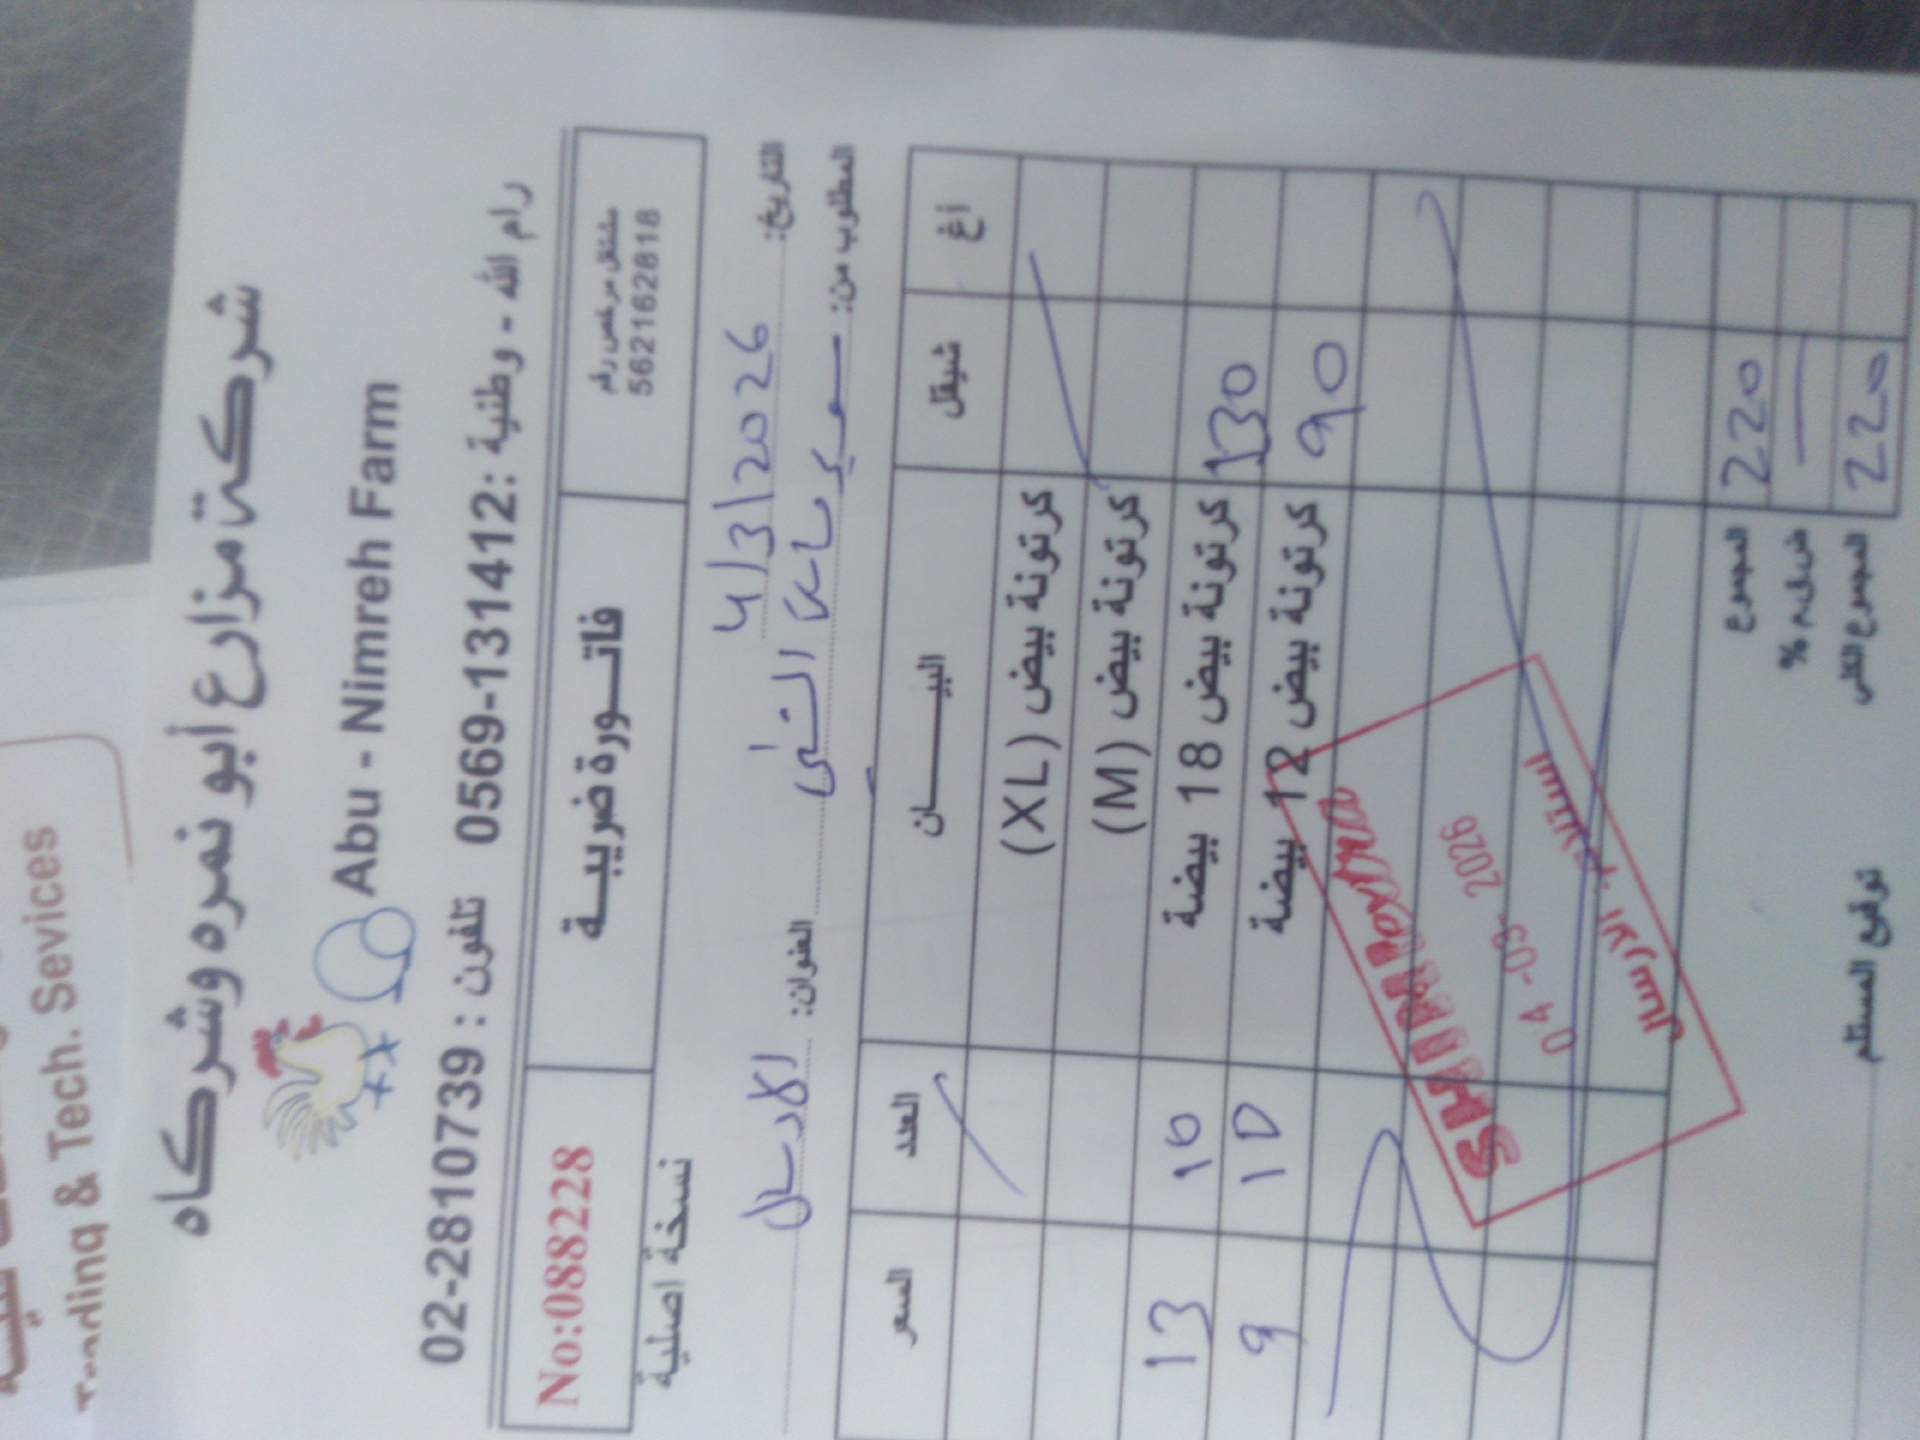 Trading & Tech. Sevices
شركة مزارع أبو نمره وشركاه
Abu - Nimreh Farm
رام الله - وطنية : 0569-131412 تلفون : 02-2810739
مشتغل مرخص رقم
562162818
فاتورة ضريبية
No:088228
نسخة اصلية
التاريخ: 4/3/2026
المطلوب من: سوبر ماركت الشني العنوان: الارسال
أغ شيقل البيــــان العدد السعر
كرتونة بيض (XL)
كرتونة بيض (M)
130 كرتونة بيض 18 بيضة 10 13
90 كرتونة بيض 12 بيضة 10 9
SHINI Extra
04 -03- 2026
استلام الارسال
220 المجموع
ض.ق.م %
220 المجموع الكلي
توقيع المستلم